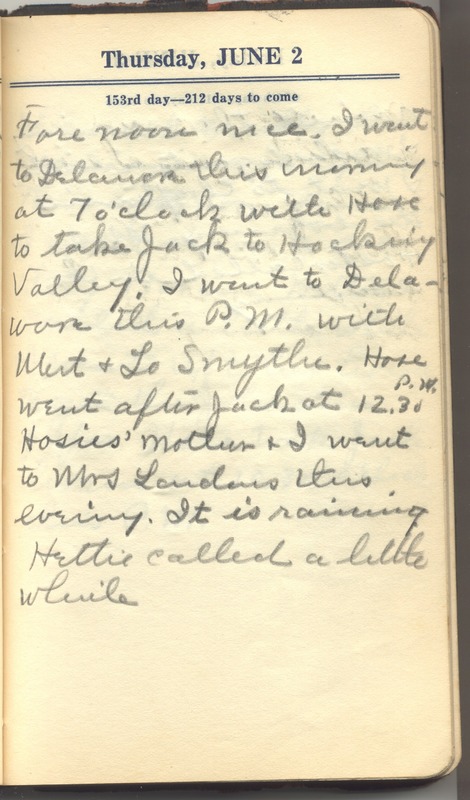 Thursday, JUNE 2
153rd day—212 days to come
Fore noon nice. I went
to Delaware this morning
at 7 o'clock with Hose
to take Jack to Hocking
Valley. I went to Dela-
ware this P.M. with
Mert & Lo Smythe. Hose
went after Jack at 12.30 P.M.
Hosies' mother & I went
to Mrs Landons this
evening. It is raining
Hettie called a little
while